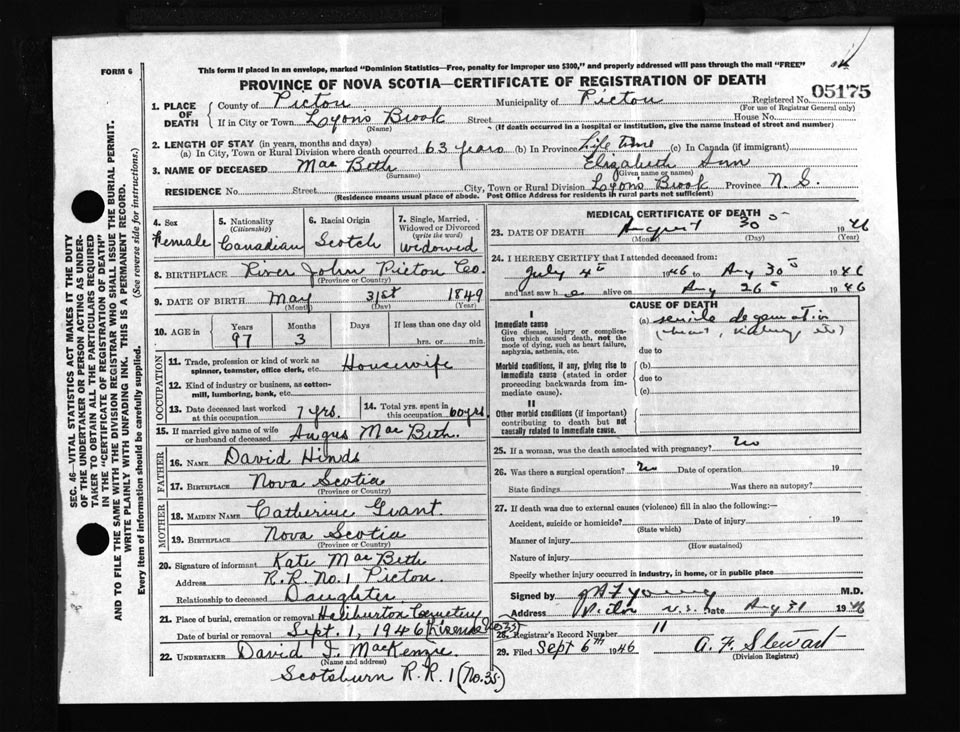 FORM 6
This form if placed in an envelope, marked "Dominion Statistics—Free, penalty for improper use $300," and properly addressed will pass through the mail "FREE"
PROVINCE OF NOVA SCOTIA—CERTIFICATE OF REGISTRATION OF DEATH
05175
1. PLACE OF DEATH
County of Pictou Municipality of Pictou Registered No.
(For use of Registrar General only)
If in City or Town Lyons Brook Street House No.
(Name) (If death occurred in a hospital or institution, give the name instead of street and number)
2. LENGTH OF STAY (in years, months and days)
(a) In City, Town or Rural Division where death occurred 63 years (b) In Province Life time (c) In Canada (if immigrant)
3. NAME OF DECEASED Mac Beth Elizabeth Ann
(Surname) (Given name or names)
RESIDENCE No. Street City, Town or Rural Division Lyons Brook Province N. S.
(Residence means usual place of abode. Post Office Address for residents in rural parts not sufficient)
4. Sex Female
5. Nationality (Citizenship) Canadian
6. Racial Origin Scotch
7. Single, Married, Widowed or Divorced (write the word) widowed
8. BIRTHPLACE River John Pictou Co.
(Province or Country)
9. DATE OF BIRTH May 31st 1849
(Month) (Day) (Year)
10. AGE in Years Months Days If less than one day old
97 3 hrs. or min.
OCCUPATION
11. Trade, profession or kind of work as spinner, teamster, office clerk, etc. Housewife
12. Kind of industry or business, as cotton-mill, lumbering, bank, etc.
13. Date deceased last worked at this occupation 7 yrs.
14. Total yrs. spent in this occupation 60 yrs.
15. If married give name of wife or husband of deceased Angus Mac Beth.
FATHER
16. NAME David Hinds
17. BIRTHPLACE Nova Scotia
(Province or Country)
MOTHER
18. MAIDEN NAME Catherine Grant
19. BIRTHPLACE Nova Scotia
(Province or Country)
20. Signature of informant Kate Mac Beth
Address R.R. No. 1 Pictou.
Relationship to deceased Daughter
21. Place of burial, cremation or removal Haliburton Cemetery
Date of burial or removal Sept. 1, 1946
22. UNDERTAKER David J. MacKenzie
(Name and address)
Scotsburn R.R. 1 (No. 35)
MEDICAL CERTIFICATE OF DEATH
23. DATE OF DEATH August 30 1946
(Month) (Day) (Year)
24. I HEREBY CERTIFY that I attended deceased from:
July 4th 1946 to Aug 30 1946
and last saw h e alive on Aug 26 1946
CAUSE OF DEATH
I
Immediate cause
Give disease, injury or complication which caused death, not the mode of dying, such as heart failure, asphyxia, asthenia, etc.
(a) senile degeneration
(heart, kidney, etc)
due to
Morbid conditions, if any, giving rise to immediate cause (stated in order proceeding backwards from immediate cause).
(b)
due to
(c)
II
Other morbid conditions (if important) contributing to death but not causally related to immediate cause.
25. If a woman, was the death associated with pregnancy? No
26. Was there a surgical operation? No Date of operation 19
State findings Was there an autopsy?
27. If death was due to external causes (violence) fill in also the following:—
Accident, suicide or homicide? Date of injury 19
(State which)
Manner of injury
(How sustained)
Nature of injury
Specify whether injury occurred in industry, in home, or in public place
Signed by Young M.D.
Address Pictou N.S. Date Aug 31 1946
28. Registrar's Record Number 11
29. Filed Sept 6th 1946 A. F. Stewart
(Division Registrar)
SEC. 46—VITAL STATISTICS ACT MAKES IT THE DUTY
OF THE UNDERTAKER OR PERSON ACTING AS UNDER-
TAKER TO OBTAIN ALL THE PARTICULARS REQUIRED
IN THE "CERTIFICATE OF REGISTRATION OF DEATH"
AND TO FILE THE SAME WITH THE DIVISION REGISTRAR WHO SHALL ISSUE THE BURIAL PERMIT.
WRITE PLAINLY WITH UNFADING INK. THIS IS A PERMANENT RECORD.
Every item of information should be carefully supplied. (See reverse side for instructions.)